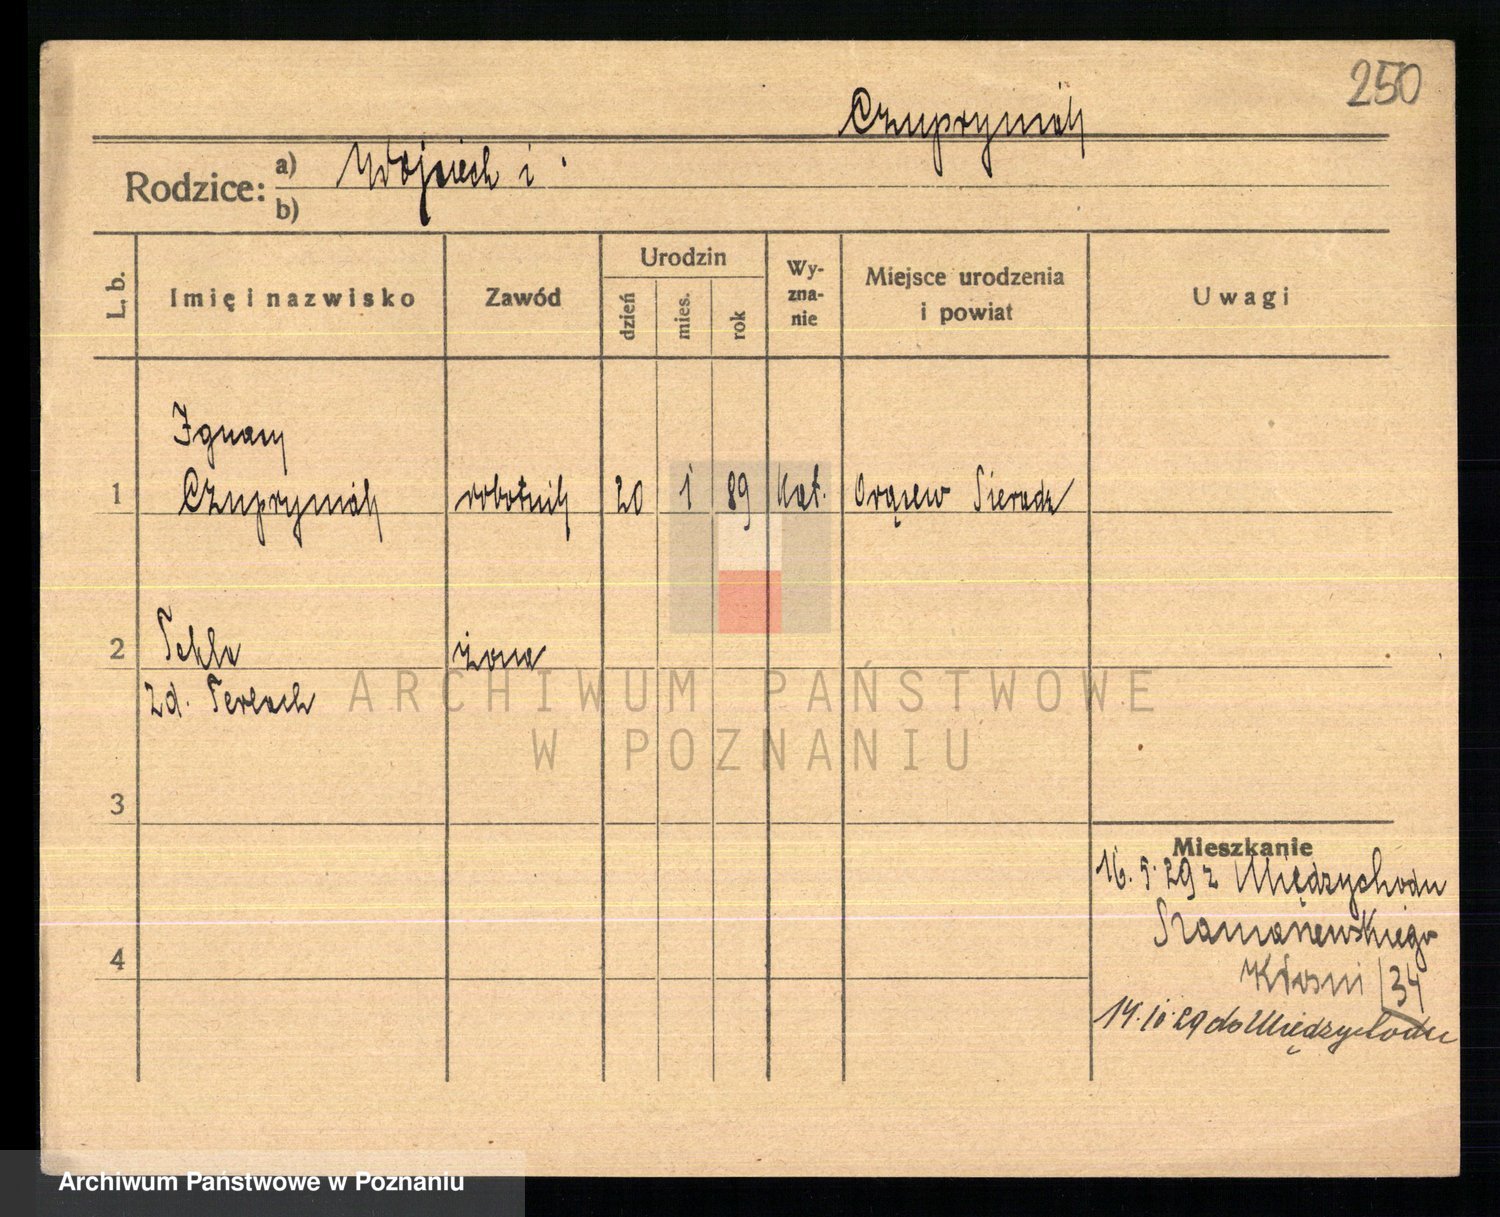 250
Czuprymák
Rodzice: a) Wojciech i
b)
L. b. Imię i nazwisko Zawód Urodzin dzień mies. rok Wy-zna-nie Miejsce urodzenia i powiat Uwagi
Ignacy
1 Czuprymák robotnik 20 1 89 Kat. Orąsew Sieradz
2 Tekla żona
zd. Terlach
ARCHIWUM PAŃSTWOWE
W POZNANIU
3
Mieszkanie
16. 5. 29 z Międzychodu
4 34
14. 10. 29 do Międzychodu
Archiwum Państwowe w Poznaniu